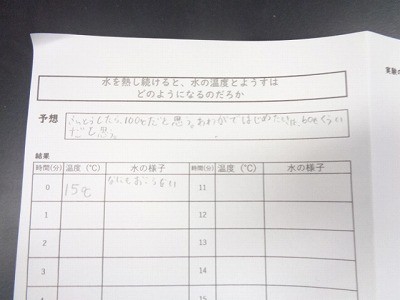 水を熱し続けると、水の温度とようすは
どのようになるのだろか
実験の
予想 ふっとうしたら、100℃だと思う。あわがではじめたいは、60℃くらい
だと思う
結果
時間(分) 温度(℃) 水の様子 時間(分) 温度(℃) 水の様子
0 15℃ なにもおこらない 11
1 12
2 13
3 14
4 15